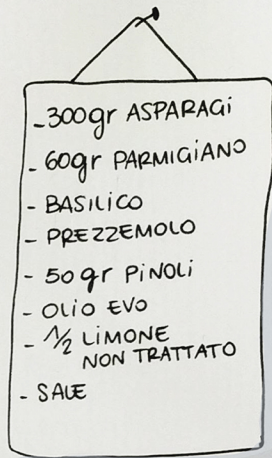 - 300gr ASPARAGI
- 60gr PARMIGIANO
- BASILICO
- PREZZEMOLO
- 50gr PINOLI
- OLIO EVO
- 1/2 LIMONE
NON TRATTATO
- SALE